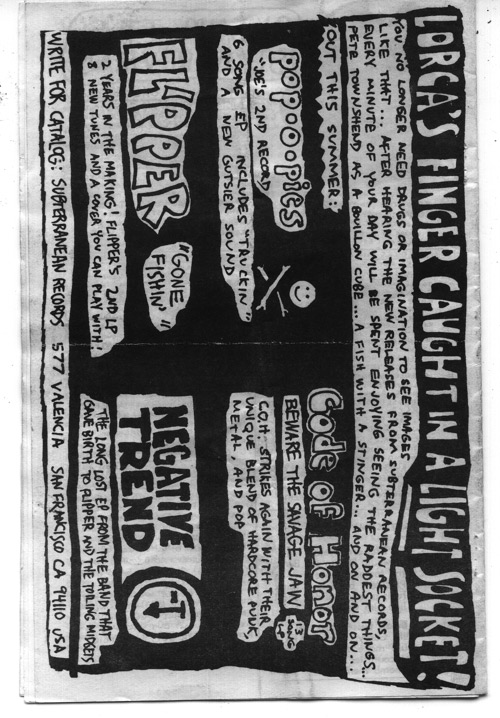 LORCA'S FINGER CAUGHT IN A LIGHT SOCKET!
YOU NO LONGER NEED DRUGS OR IMAGINATION TO SEE IMAGES
LIKE THAT... AFTER HEARING THE NEW RELEASES FROM SUBTERRANEAN RECORDS,
EVERY MINUTE OF YOUR DAY WILL BE SPENT ENJOYING SEEING THE RADDEST THINGS...
PETE TOWNSHEND AS A BOUILLON CUBE... A FISH WITH A STINGER... AND ON AND ON...
OUT THIS SUMMER:
POP-O-PIES
"JOE'S 2ND RECORD
6 SONG EP INCLUDES "TRUCKIN"
AND A NEW GUTSIER SOUND
FLIPPER
"GONE
FISHIN'"
2 YEARS IN THE MAKING! FLIPPER'S 2ND LP
8 NEW TUNES AND A COVER YOU CAN PLAY WITH!
Code of Honor
BEWARE THE SAVAGE JAW
13
SONG
LP
C.O.H. STRIKES AGAIN WITH THEIR
UNIQUE BLEND OF HARDCORE PUNK,
METAL AND POP
NEGATIVE
TREND
THE LONG LOST EP FROM THE BAND THAT
GAVE BIRTH TO FLIPPER AND THE TOILING MIDGETS
WRITE FOR CATALOG: SUBTERRANEAN RECORDS 577 VALENCIA SAN FRANCISCO CA 94110 USA